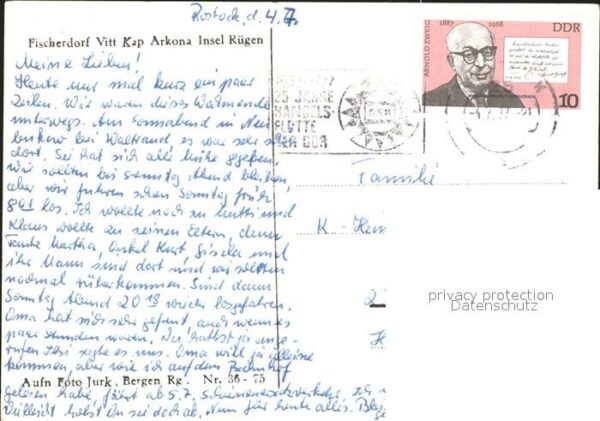 Rostock, d. 4.7.
Fischerdorf Vitt Kap Arkona Insel Rügen
Meine Lieben!
Heute nur mal kurz ein paar
Zeilen. Wir waren dieses Wochenende
unterwegs. Am Sonnabend in
bei Waltraud, es war sehr schön
dort. Sie hat sich alle Mühe gegeben,
wir sollten bis Sonntag Abend bleiben,
aber wir fuhren schon Sonntag früh
8 01 los. Ich wollte noch zu Mutti und
Klaus wollte zu seinen Eltern, denn
Tante Martha, Onkel Kurt, Gisela und
ihr Mann sind dort und wir sollten
nochmal rüberkommen. Sind dann
Sonntag Abend 20 19 wieder losgefahren.
Oma hat sich sehr gefreut, auch wenn es
paar Stunden waren. Du hattest ja ange-
rufen sagte es uns. Oma will ja alleine
kommen, aber wie ich auf dem Bahnhof
gelesen habe, fährt ab 5.7. Schienenersatzverkehr. Ich
Vielleicht holst Du sie doch ab. Nun für heute alles.
Aufn Foto Jurk, Bergen Rg. Nr. 36 - 75
25 JAHRE
HANDELS-
FLOTTE
DER DDR
ARNOLD ZWEIG
1887 1968
DDR
10
Familie
K -
2
privacy protection
Datenschutz